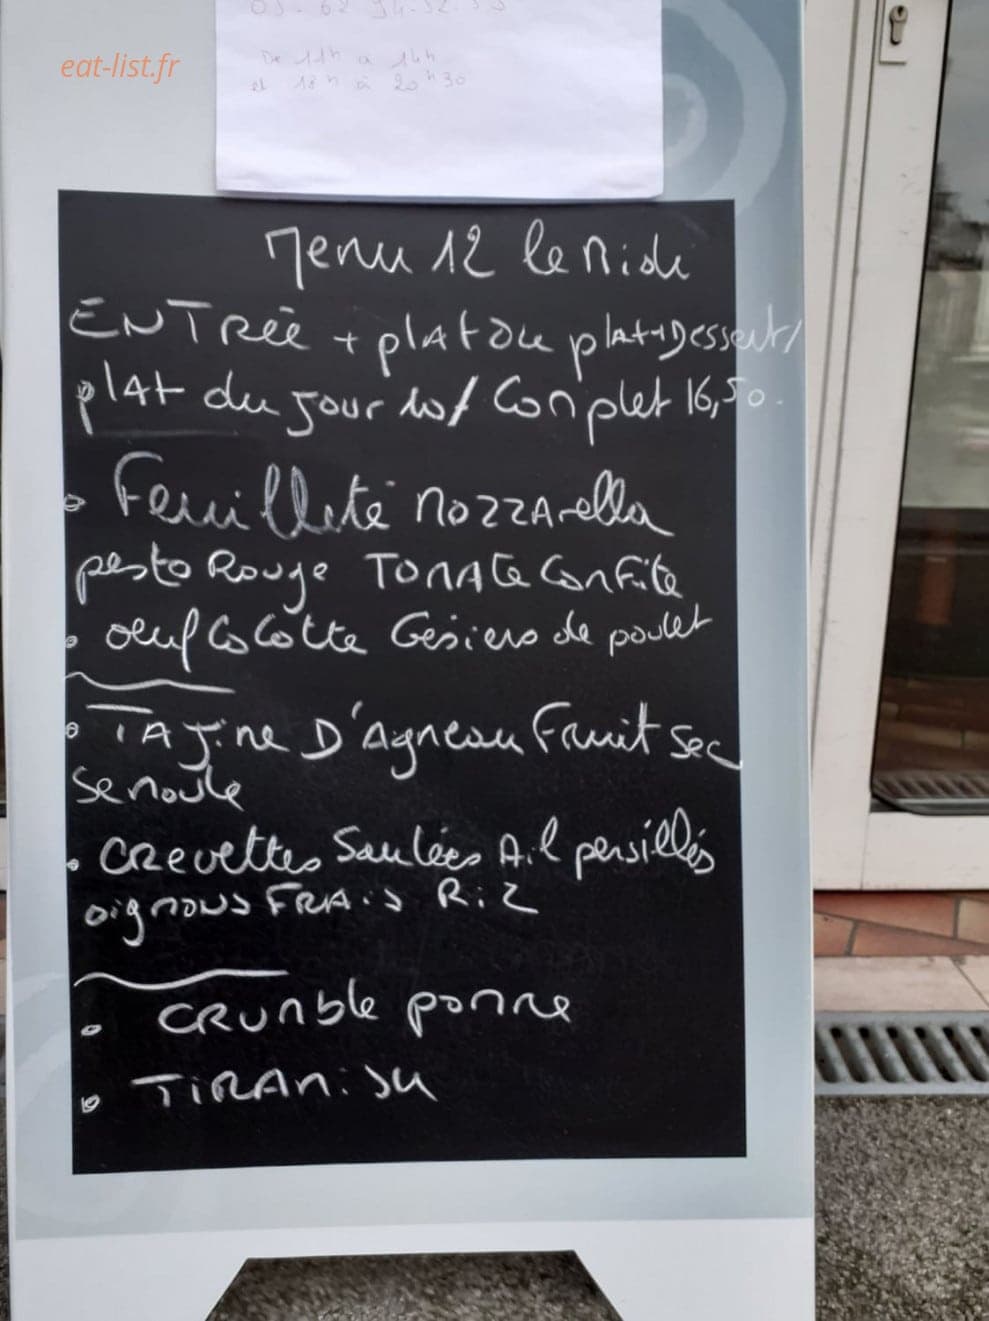 eat-list.fr
De 11h a 14h
et 18h à 20h30
Menu 12 le Midi
ENTRéE + plAt ou plat+Dessert/
plAt du Jour 10/ Complet 16,50.
Feuilleté MozzArella
pesto Rouge TOMATe ConFite
oeuf CoCotte Gésiers de poulet
TAJine D'Agneau Fruit sec
semoule
CRevettes Sautées Ail persillés
oignons FRAis Riz
CRUmble pomme
TiRAmisu